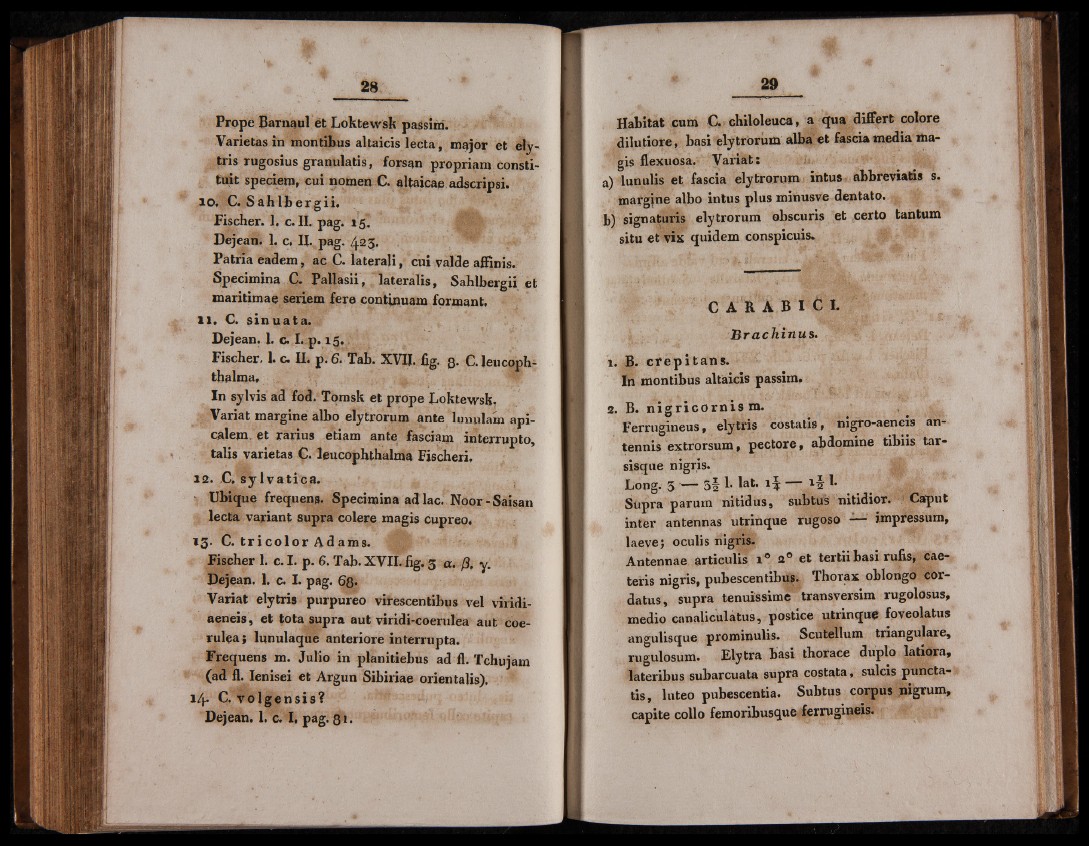 28
Prope Barnaul et Loktewsk passim.
Varietas in montibus altaicis lecta, major et ely-
tris rugosius granulatis, forsan propriam consti-
tuit speciem, cui nomen C. altaicae adscripsi.
10. C. Sahlbergii.
Fischer. l. c. II. pag. 15.
Dejean. l. c. II. pag. 423.
Patria eadem, ac C. laterali, cui valde affinis.
Specimina C. Pallasii, lateralis, Sahlbergii et
maritimae seriem fere continuam formant.
11. C. sinuata.
Dejean. l. c. I. p. 15.
Fischer. l. c. II. p. 6. Tab. XVII. fig. 3. C. leucoph-
thalma.
In sylvis ad fod. Tomsk et prope Loktewsk.
Variat margine albo elytrorum ante lunulam api-
calem et rarius etiam ante fasciam interrupto,
talis varietas C. leucophthalma Fischeri.
12. C. sylvatica.
Ubique frequens. Specimina ad lac. Noor-Saisan
lecta variant supra colere magis cupreo.
13. C. tricolor Adams.
Fischer l. c. I. p. 6. Tab. XVII. fig. 3 α. β. γ.
Dejean. l. c. I. pag. 63.
Variat elytris purpureo virescentibus vel viridi-
aeneis, et tota supra aut viridi-coerulea aut coe-
rulea; lunulaque anteriore interrupta.
Frequens m. Julio in planitiebus ad fl. Tchujam
(ad fl. Ienisei et Argun Sibiriae orientalis).
14. C. volgensis?
Dejean. l. c. I. pag. 81.
29
Habitat cum C. chiloleuca, a qua differt colore
dilutiore, basi elytrorum alba et fascia media ma-
gis flexuosa. Variat:
a) lunulis et fascia elytrorum intus abbreviatis s.
margine albo intus plus minusve dentato.
b) signaturis elytrorum obscuris et certo tantum
situ et vix quidem conspicuis.
CARABICI.
Brachinus.
1. B. crepitans.
In montibus altaicis passim.
2. B. nigricornis m.
Ferrugineus, elytris costatis, nigro-aeneis an-
tennis extrorsum, pectore, abdomine tibiis tar-
sisque nigris.
Long. 3 — 3½ l. lat. 1¼ — 1½ l.
Supra parum nitidus, subtus nitidior. Caput
inter antennas utrinque rugoso — impressum,
laeve; oculis nigris.
Antennae articulis 1° 2° et tertii basi rufis, cae-
teris nigris, pubescentibus. Thorax oblongo cor-
datus, supra tenuissime transversim rugolosus,
medio canaliculatus, postice utrinque foveolatus
angulisque prominulis. Scutellum triangulare,
rugulosum. Elytra basi thorace duplo latiora,
lateribus subarcuata supra costata, sulcis puncta-
tis, luteo pubescentia. Subtus corpus nigrum,
capite collo femoribusque ferrugineis.